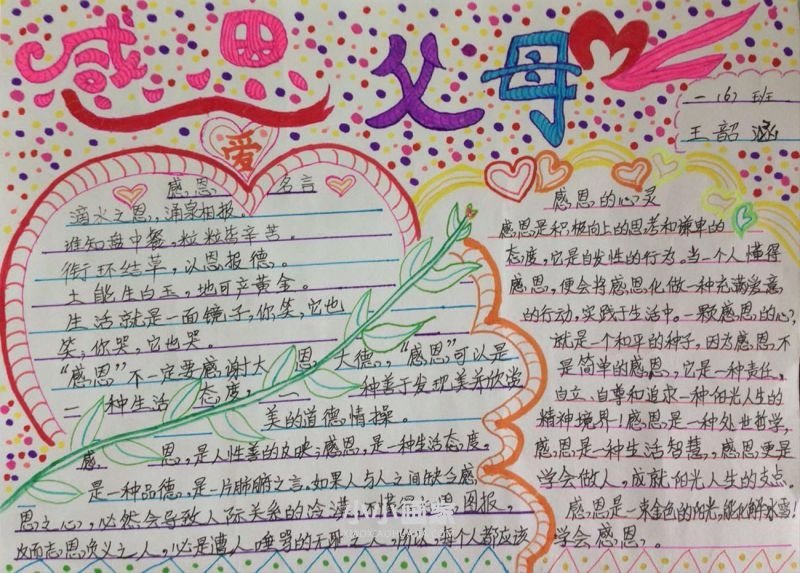 感恩父母
一(6)班
王韶涵
爱
感恩名言
滴水之恩,涌泉相报。
谁知盘中餐,粒粒皆辛苦。
衔环结草,以恩报德。
土能生白玉,地可产黄金。
生活就是一面镜子,你笑,它也
笑,你哭,它也哭。
“感恩”不一定要感谢大恩大德,“感恩”可以是
一种生活态度,一种善于发现美并欣赏
美的道德情操。
感恩,是人性善的反映;感恩,是一种生活态度,
是一种品德,是一片肺腑之言。如果人与人之间缺乏感
恩之心,必然会导致人际关系的冷漠,不懂得知恩图报,
反而忘恩负义之人,必是遭人唾骂的无耻之人,所以,每个人都应该
学会感恩。
感恩的心灵
感恩是积极向上的思考和谦卑的
态度,它是自发性的行为。当一个人懂得
感恩,便会将感恩化做一种充满爱意
的行动,实践于生活中。一颗感恩的心,
就是一个和平的种子,因为感恩不
是简单的感恩,它是一种责任,
自立、自尊和追求一种阳光人生的
精神境界!感恩是一种处世哲学,
感恩是一种生活智慧,感恩更是
学会做人,成就阳光人生的支点。
感恩是一束金色的阳光,能化解冰雪!